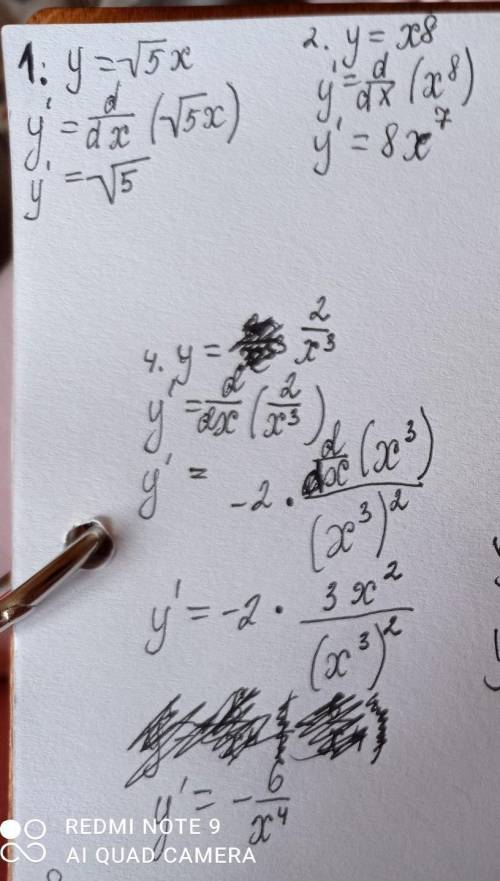 1: y = √5 x
y' = d/dx (√5x)
y' = √5
2. y = x8
y' = d/dx (x^8)
y' = 8x^7
4. y = 2/x^3
y' = d/dx (2/x^3)
y' = -2 · d/dx (x^3)/(x^3)^2
y' = -2 · 3x^2/(x^3)^2
y' = - 6/x^4
REDMI NOTE 9
AI QUAD CAMERA